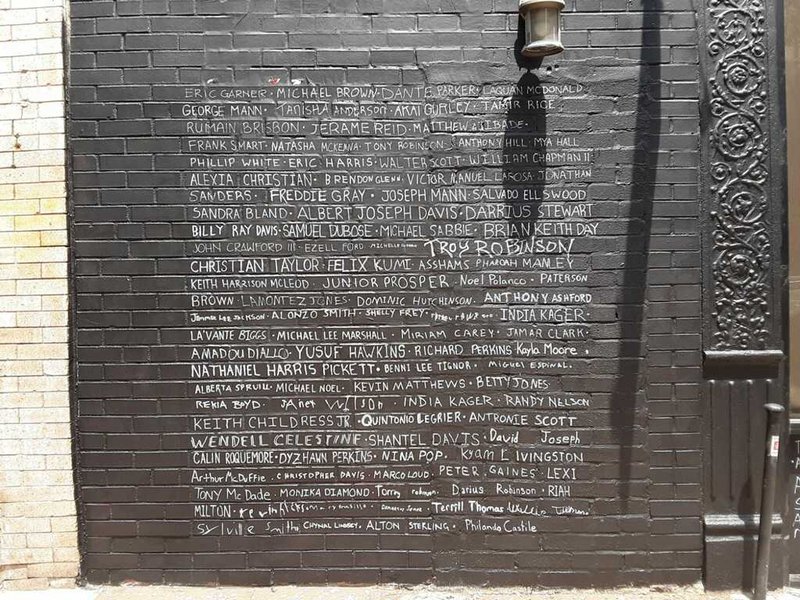 ERIC GARNER · MICHAEL BROWN · DANTE PARKER · LAQUAN MCDONALD
GEORGE MANN · TANISHA ANDERSON · AKAI GURLEY · TAMIR RICE
RUMAIN BRISBON · JERAME REID · MATTHEW AJIBADE ·
FRANK SMART · NATASHA MCKENNA · TONY ROBINSON · ANTHONY HILL · MYA HALL
PHILLIP WHITE · ERIC HARRIS · WALTER SCOTT · WILLIAM CHAPMAN II
ALEXIA CHRISTIAN · BRENDON GLENN · VICTOR MANUEL LAROSA · JONATHAN
SANDERS · FREDDIE GRAY · JOSEPH MANN · SALVADO ELLSWOOD
SANDRA BLAND · ALBERT JOSEPH DAVIS · DARRIUS STEWART
BILLY RAY DAVIS · SAMUEL DUBOSE · MICHAEL SABBIE · BRIAN KEITH DAY
JOHN CRAWFORD III · EZELL FORD · MICHELLE TROY ROBINSON
CHRISTIAN TAYLOR · FELIX KUMI · ASSHAMS PHAROAH MANLEY
KEITH HARRISON MCLEOD · JUNIOR PROSPER · Noel Polanco · PATERSON
BROWN · LAMONTEZ JONES · DOMINIC HUTCHINSON · ANTHONY ASHFORD
LEE JACKSON · ALONZO SMITH · SHELLY FREY · INDIA KAGER ·
LA'VANTE BIGGS · MICHAEL LEE MARSHALL · MIRIAM CAREY · JAMAR CLARK ·
AMADOU DIALLO · YUSUF HAWKINS · RICHARD PERKINS Kayla Moore .
NATHANIEL HARRIS PICKETT · BENNI LEE TIGNOR · MIGUEL ESPINAL ·
ALBERTA SPRUILL · MICHAEL NOEL · KEVIN MATTHEWS · BETTY JONES
REKIA BOYD · JANET WILSON · INDIA KAGER · RANDY NELSON
KEITH CHILDRESS JR. · QUINTONIO LEGRIER · ANTRONIE SCOTT
WENDELL CELESTINE · SHANTEL DAVIS · David Joseph
CALIN ROQUEMORE · DYZHAWN PERKINS · NINA POP · Kyam LIVINGSTON
Arthur McDuffie · CHRISTOPHER DAVIS · MARCO LOUD · PETER GAINES · LEXI
TONY McDade · MONIKA DIAMOND · Torrey robinson · Darius Robinson · RIAH
MILTON · Terrill Thomas
Sylville Smith · CHYNAL LINDSEY · ALTON STERLING · Philando Castile